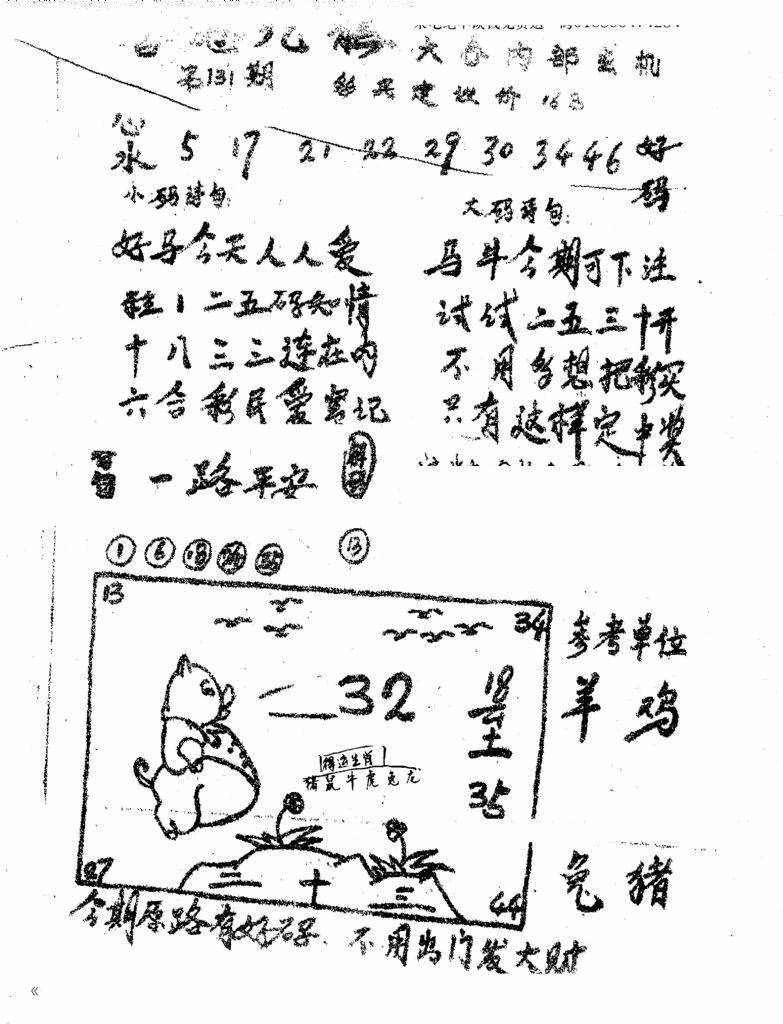 大 合 内 部 玄 机
第131期
彩民建议价 16B
心水 5 17 21 22 29 30 34 46 好码
小码诗句
大码诗句:
好马今天人人爱
马牛今期可下注
1 二五码知情
试试二五三十开
十八三三连在内
不用多想把彩买
六合彩民爱笔记
只有这样定中奖
一路平安
1 6 18 24 35 13
13
34
参考单位
羊 鸡
32
18
35
特选生肖
猪鼠牛虎兔龙
兔 猪
27
三 十 三
44
今期原路有好码 不用出门发大财
«